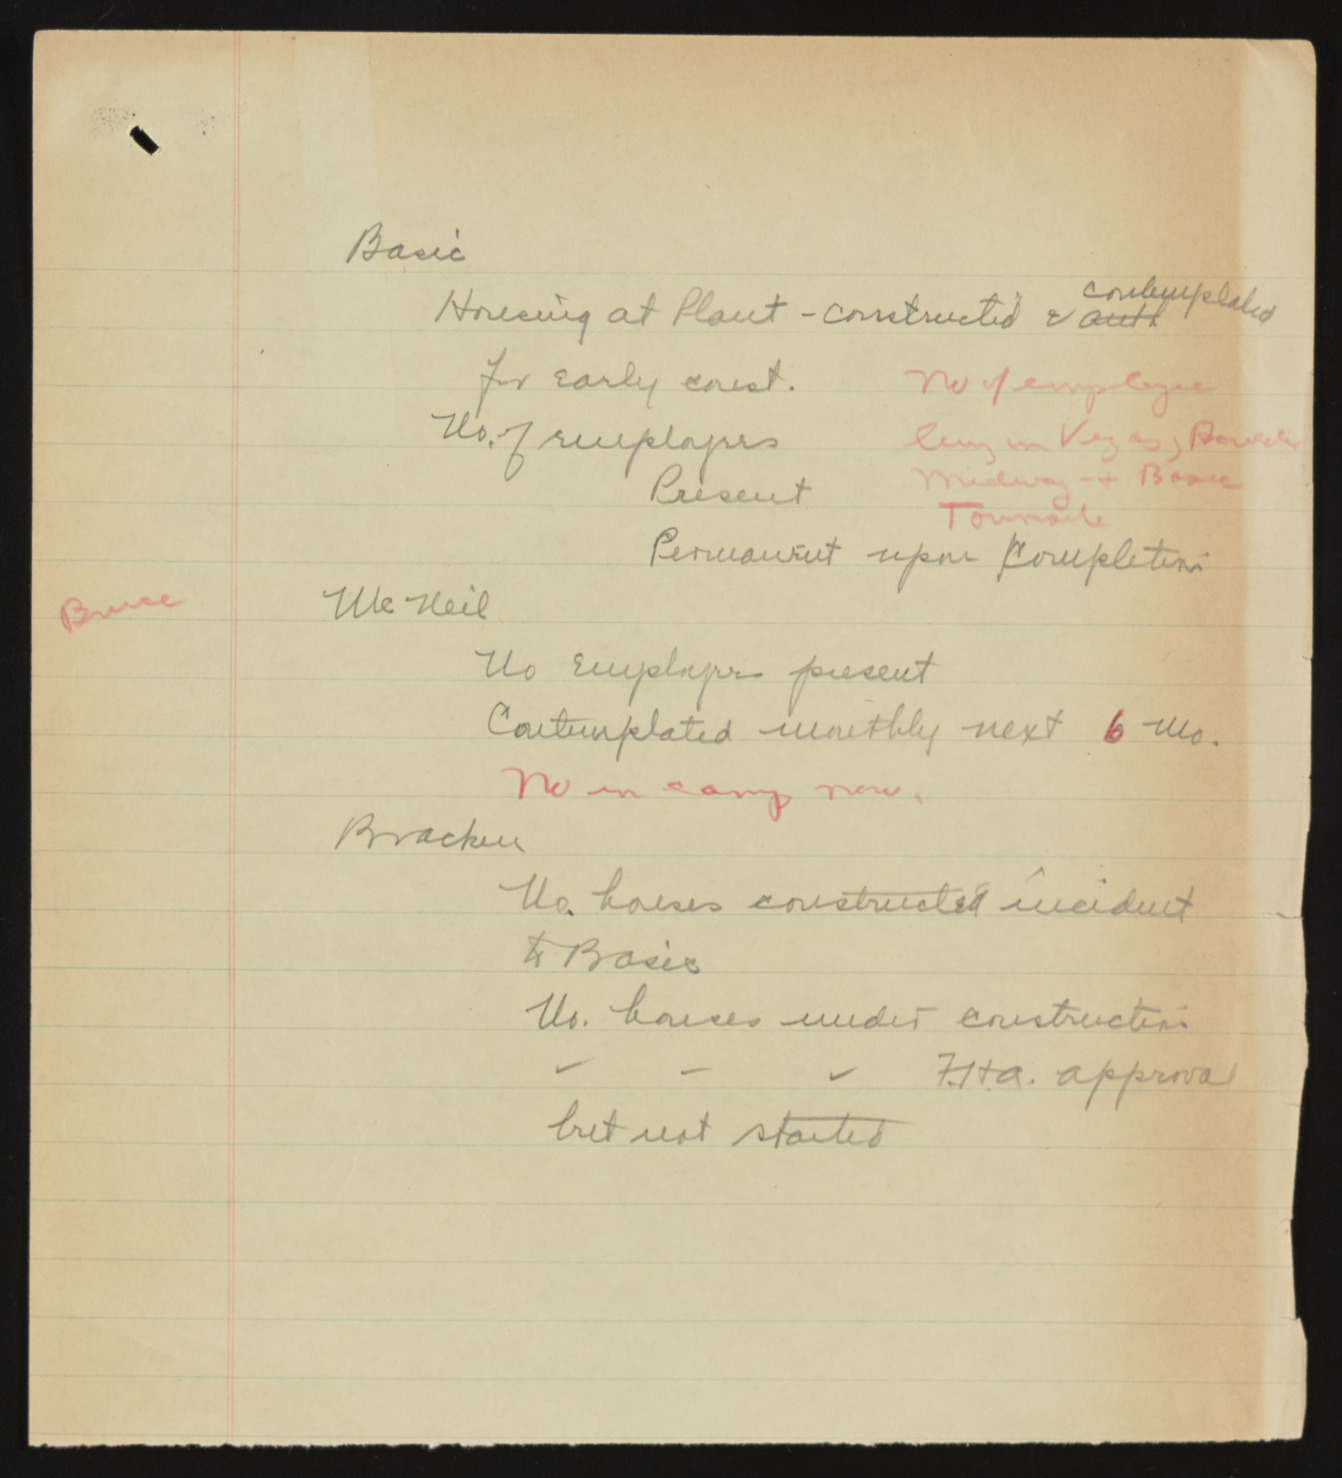 Basic
Housing at Plant - constructed & auth contemplated
for early const.
No of employee
No. of employes
living in Vegas, Boulder
Present
Midway + Basic
Townsite
Permanent upon Completion
Bruce
McNeil
No employes present
Contemplated monthly next 6 Mo.
No in camp now.
Bracken
No. houses constructed incident
to Basic
No. houses under construction
" " " F.H.A. approval
but not started